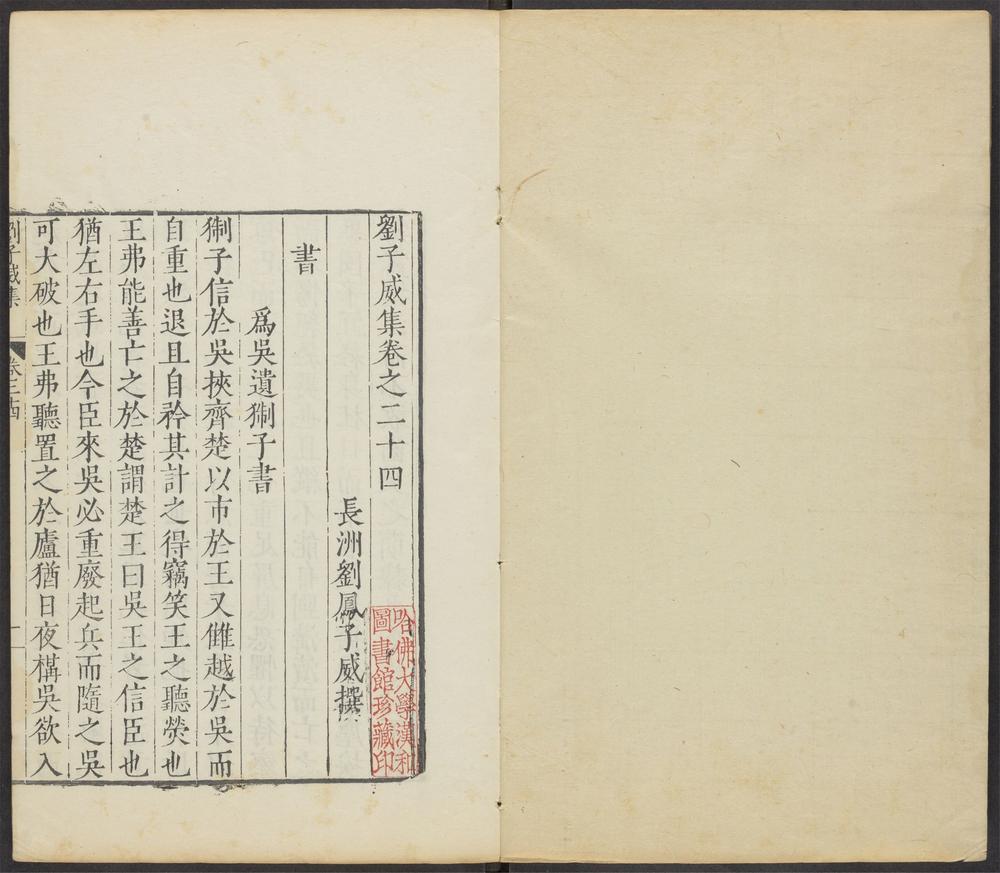 劉子威集卷之二十四
長洲劉鳳子威撰
書
爲吳遺猘子書
猘子信於吳挾齊楚以市於王又讎越於吳而
自重也退且自矜其計之得竊笑王之聽熒也
王弗能善亡之於楚謂楚王曰吳王之信臣也
猶左右手也今臣來吳必重廢起兵而隨之吳
可大破也王弗聽置之於廬猶日夜構吳欲入
劉子威集
哈佛大學漢和
圖書館珍藏印